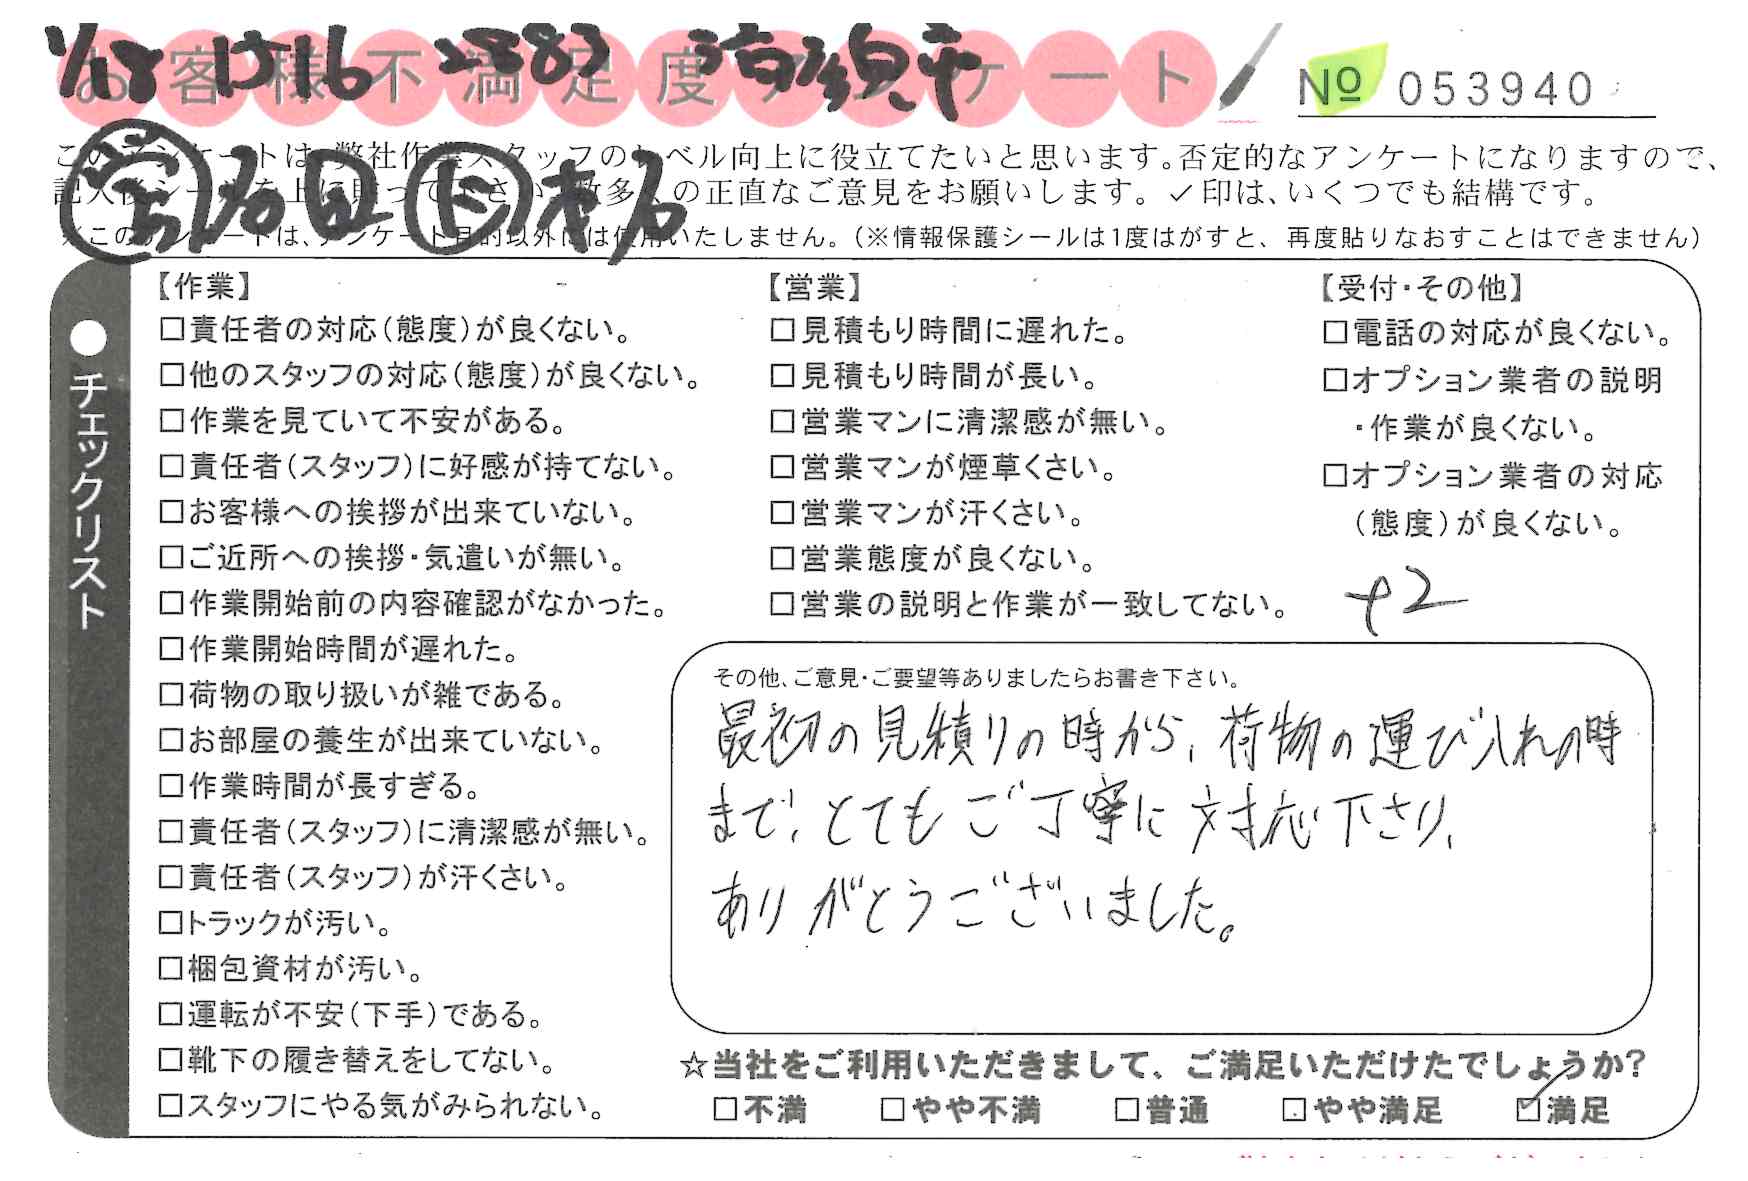 お客様不満足度アンケート
No 053940
このアンケートは、弊社作業スタッフのレベル向上に役立てたいと思います。否定的なアンケートになりますので、
記入後シールを上に貼って下さい。数多くの正直なご意見をお願いします。✓印は、いくつでも結構です。
※このアンケートは、アンケート目的以外には使用いたしません。(※情報保護シールは1度はがすと、再度貼りなおすことはできません)
●チェックリスト
【作業】
□責任者の対応(態度)が良くない。
□他のスタッフの対応(態度)が良くない。
□作業を見ていて不安がある。
□責任者(スタッフ)に好感が持てない。
□お客様への挨拶が出来ていない。
□ご近所への挨拶・気遣いが無い。
□作業開始前の内容確認がなかった。
□作業開始時間が遅れた。
□荷物の取り扱いが雑である。
□お部屋の養生が出来ていない。
□作業時間が長すぎる。
□責任者(スタッフ)に清潔感が無い。
□責任者(スタッフ)が汗くさい。
□トラックが汚い。
□梱包資材が汚い。
□運転が不安(下手)である。
□靴下の履き替えをしてない。
□スタッフにやる気がみられない。
【営業】
□見積もり時間に遅れた。
□見積もり時間が長い。
□営業マンに清潔感が無い。
□営業マンが煙草くさい。
□営業マンが汗くさい。
□営業態度が良くない。
□営業の説明と作業が一致してない。
【受付・その他】
□電話の対応が良くない。
□オプション業者の説明
・作業が良くない。
□オプション業者の対応
(態度)が良くない。
+2
その他、ご意見・ご要望等ありましたらお書き下さい。
最初の見積りの時から、荷物の運び入れの時
まで、とてもご丁寧に対応下さり、
ありがとうございました。
☆当社をご利用いただきまして、ご満足いただけたでしょうか?
□不満 □やや不満 □普通 □やや満足 ☑満足